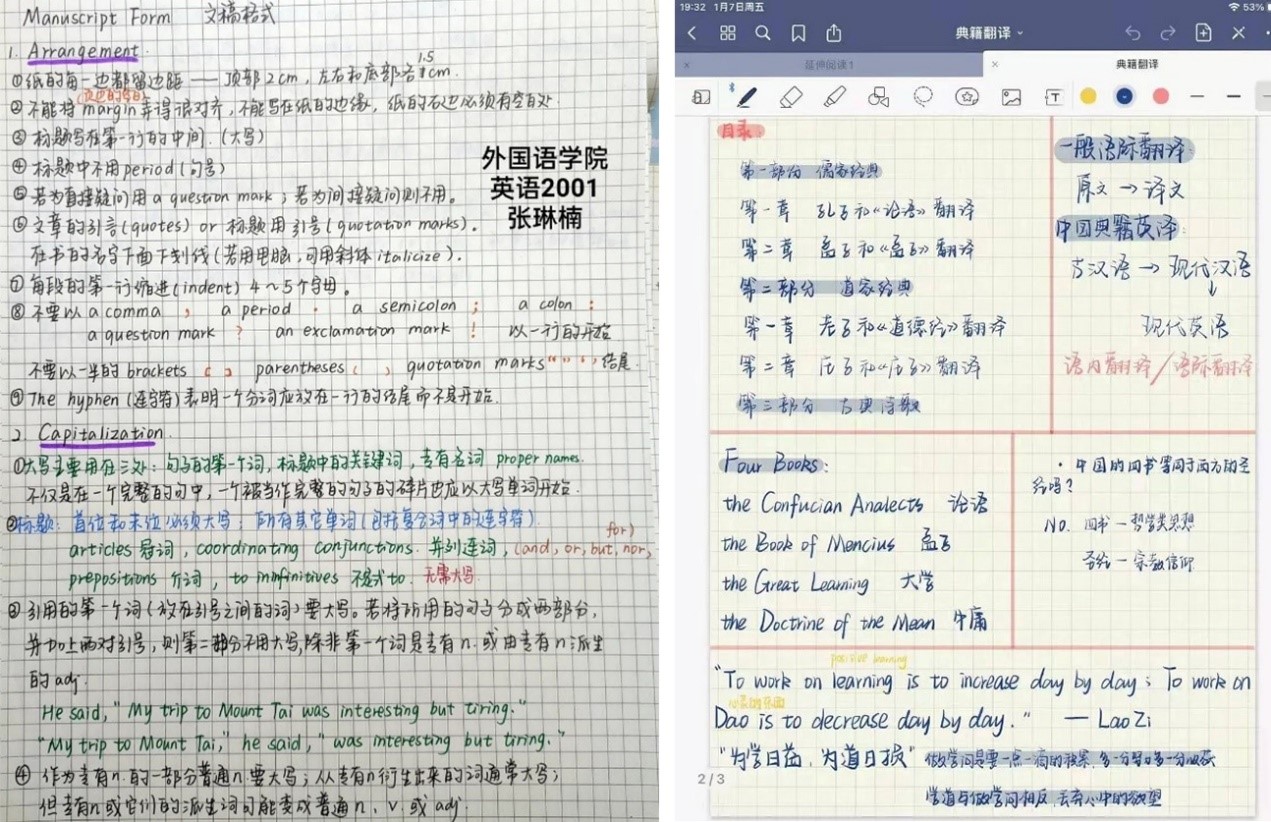 Manuscript Form 文稿格式
1. Arrangement.
①纸的每一边都留边距 —— 顶部2cm, 左右和底部各1cm.
1.5
(页边的空白)
②不能将margin弄得很对齐,不能写在纸的边缘,纸的右边必须有空白处.
③标题写在第一行的中间.(大写)
④标题中不用period(句号)
⑤若为直接疑问用 a question mark;若为间接疑问则不用。
⑥文章的引言(quotes) or 标题用引号(quotation marks).
在书的名字下面下划线(若用电脑,可用斜体italicize).
⑦每段的第一行缩进(indent) 4~5个字母。
⑧不要以a comma , a period . a semicolon ; a colon :
a question mark ? an exclamation mark ! 以一行的开始
不要以一半的brackets parentheses ( , quotation marks 结尾.
⑨The hyphen (连字符)表明一个分词应放在一行的结尾而不是开始.
2. Capitalization.
①大写主要用在三处:句子的第一个词,标题中的关键词,专有名词 proper names.
不仅是在一个完整的句中,一个被当作完整的句子的碎片也应以大写单词开始.
②标题:首位和末位必须大写;所有其它单词(包括复合词中的连字符).
articles 冠词, coordinating conjunctions. 并列连词, (and, or, but, nor, for)
prepositions 介词, to infinitives 不定式to. 无需大写.
③引用的第一个词(放在引号之间的词)要大写。若将所用的句子分成两部分,
并加上两对引号,则第二部分不用大写,除非第一个词是专有n.或由专有n派生
的adj.
He said, "My trip to Mount Tai was interesting but tiring."
"My trip to Mount Tai," he said, "was interesting but tiring."
④作为专有n.的一部分普通n.要大写;从专有n衍生出来的词通常大写;
但专有n或它们的派生词可能变成普通n. v. 或adj.
外国语学院
英语2001
张琳楠
19:32 1月7日周五
53%
典籍翻译
延伸阅读1
典籍翻译
目录
第一部分 儒家经典
第一章 孔子和《论语》翻译
第二章 孟子和《孟子》翻译
第二部分 道家经典
第一章 老子和《道德经》翻译
第二章 庄子和《庄子》翻译
第三部分 古典诗歌
一般语际翻译:
原文 → 译文
中国典籍英译:
古汉语 → 现代汉语
↓
现代英语
语内翻译/语际翻译
Four Books:
the Confucian Analects 论语
the Book of Mencius 孟子
the Great Learning 大学
the Doctrine of the Mean 中庸
· 中国的四书等同于西方的圣
经吗?
NO. 四书 — 哲学类思想
圣经 — 宗教信仰
"To work on learning is to increase day by day; To work on
Dao is to decrease day by day." — Lao Zi
"为学日益,为道日损"
2/3
学道与做学问相反,去弃心中的欲望